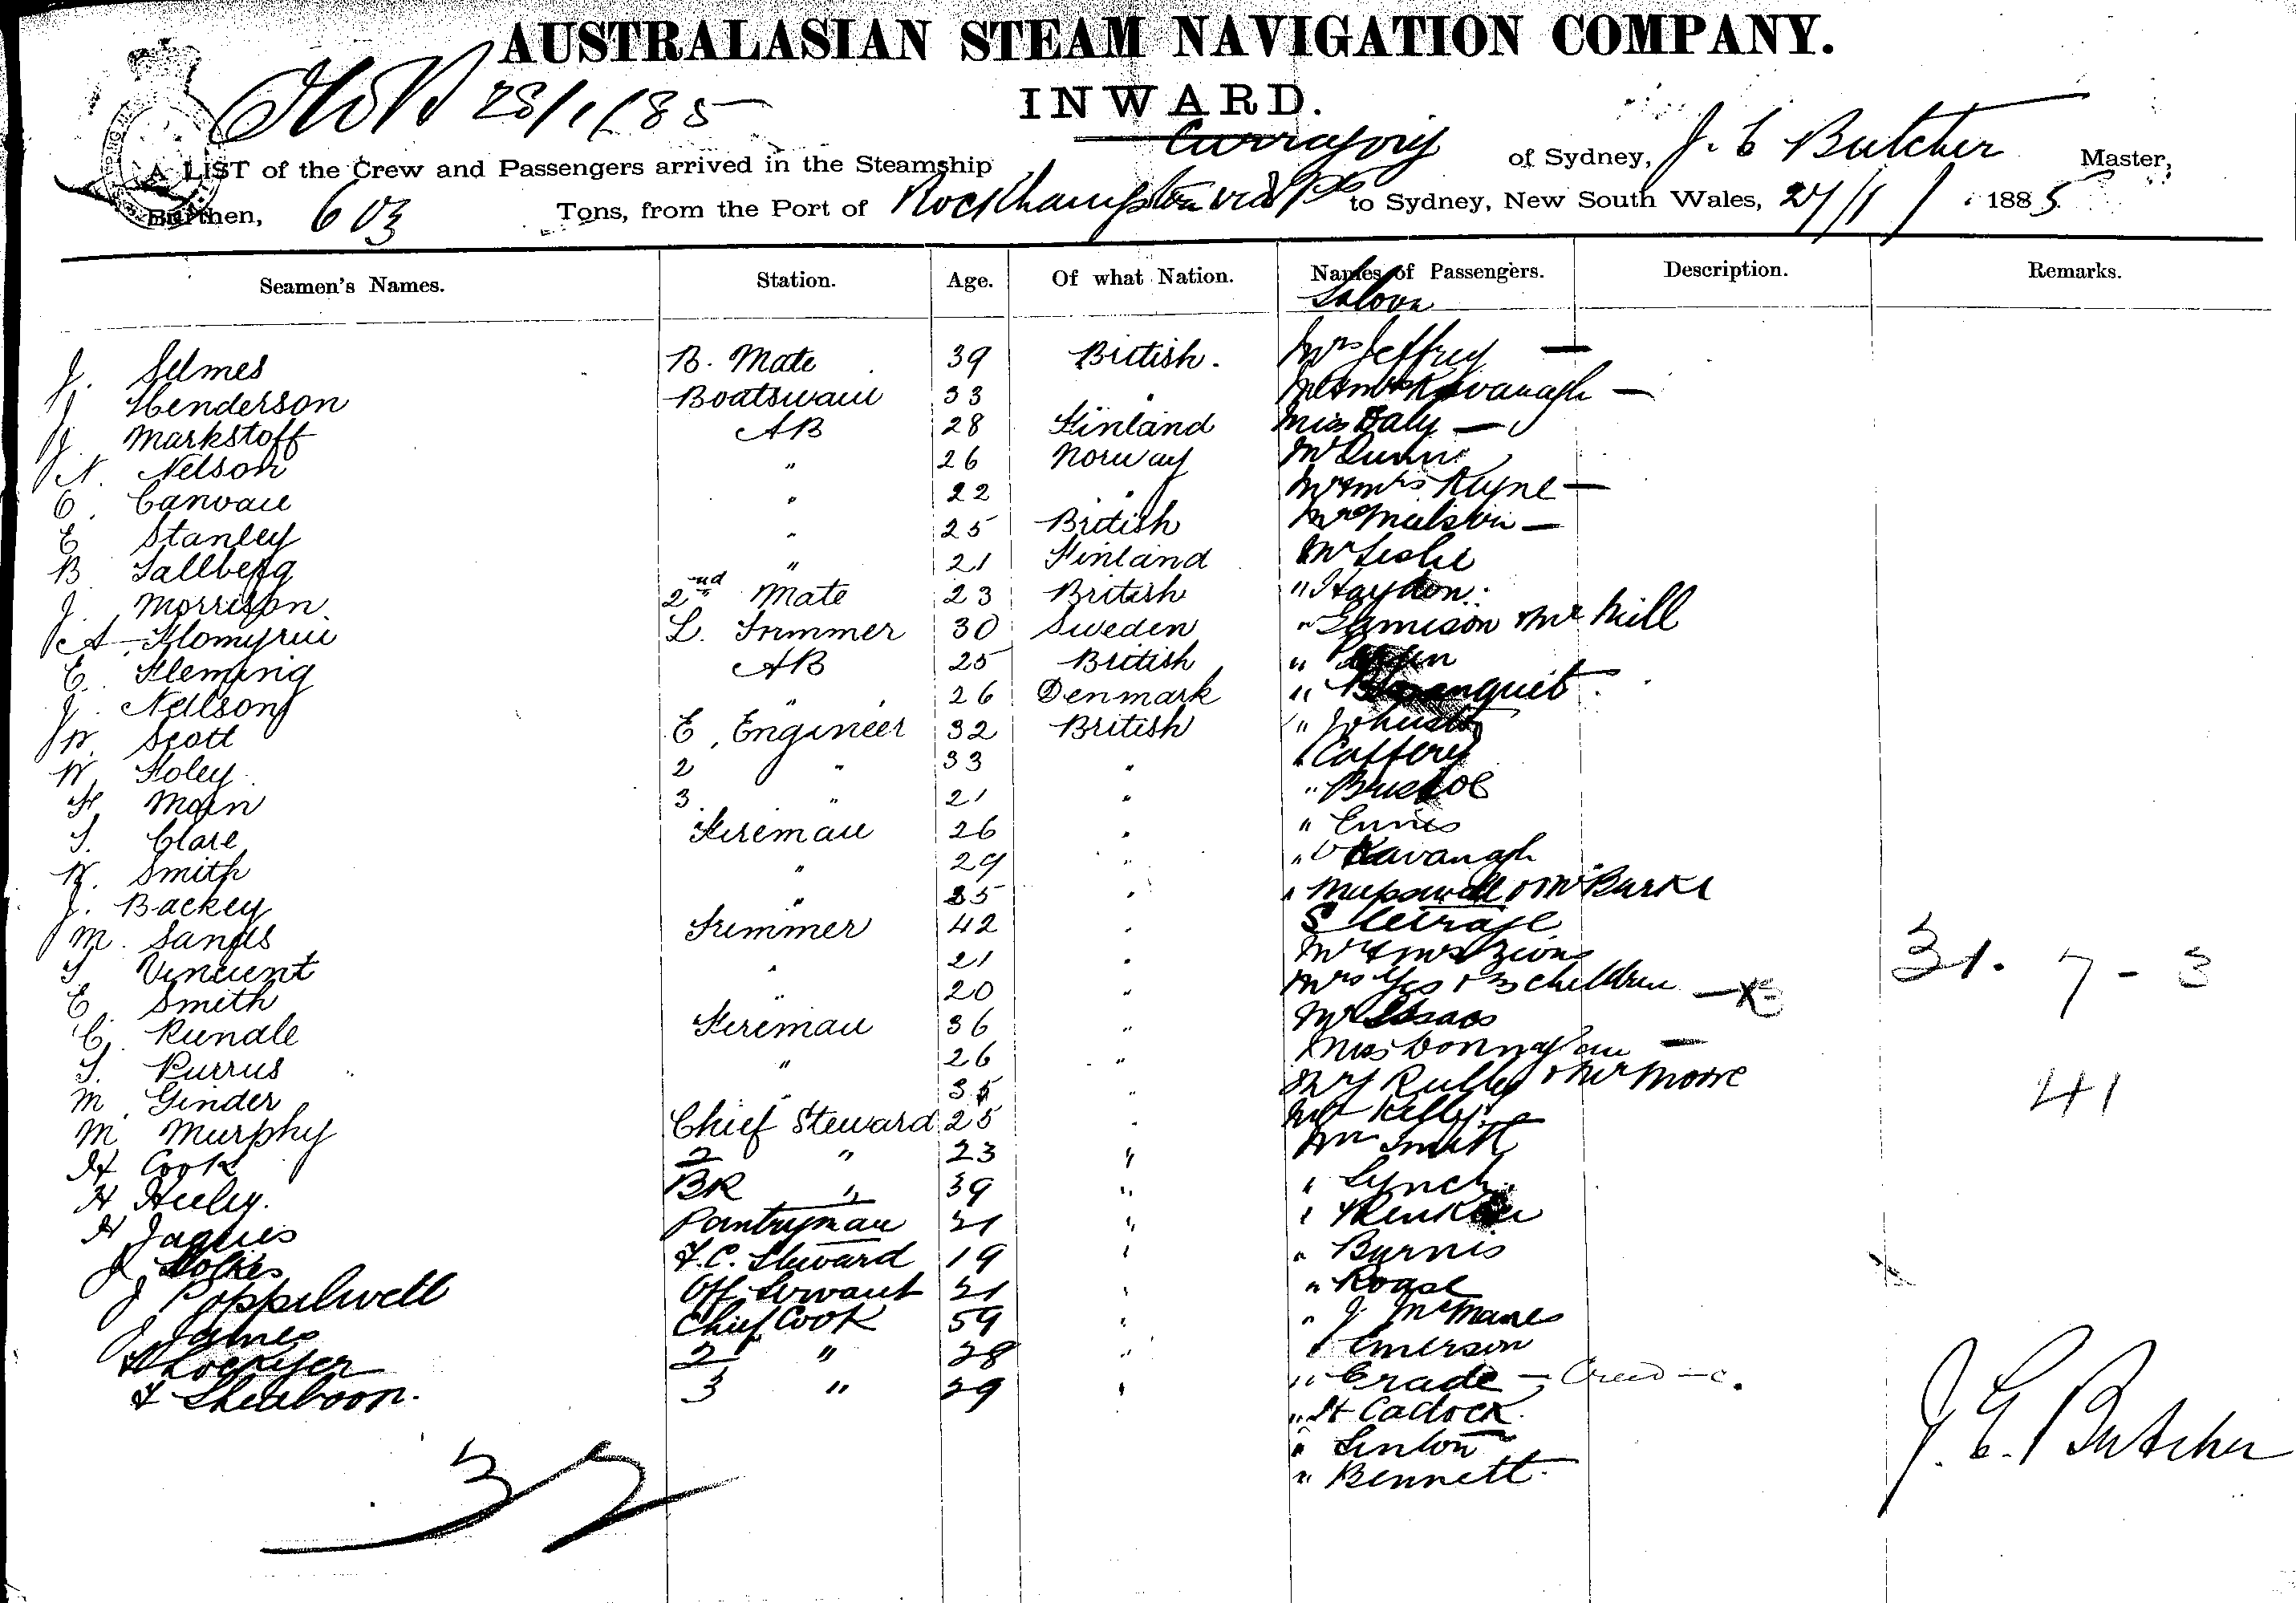 AUSTRALASIAN STEAM NAVIGATION COMPANY.
28/1/85
INWARD.
A LIST of the Crew and Passengers arrived in the Steamship Corragong of Sydney, J. E Butcher Master,
Burthen, 603 Tons, from the Port of Rockhampton via to Sydney, New South Wales, 27/1/ 1885
Seamen's Names. Station. Age. Of what Nation. Names of Passengers. Description. Remarks.
Saloon
J. Selmes B. Mate 39 British. Mrs Jeffrey —
J Henderson Boatswain 33 " Mr & Mrs Kavanagh —
J Markstoff AB 28 Finland Miss Daly —
N. Nelson " 26 Norway Mr Dunn
C. Canvau " 22 " Mr & Mrs Kayne —
E Stanley " 25 British Mrs —
B Sallberg " 21 Finland Mr Leslie
J. Morrison 2nd Mate 23 British " Haydon
A. L. Trimmer 30 Sweden " Jamison & Mr Mill
E. Fleming AB 25 British "
J. Neilson " 26 Denmark "
W. Scott E. Engineer 32 British " Johnston
W. Foley 2 " 33 " " Caffery
F. Main 3. " 21 " " Bristol
T. Clare Fireman 26 " " Ennis
W. Smith " 29 " " Kavanagh
J. Backey " 35 " " & Mr Burke
M. Sands Trimmer 42 " Steerage
T Vincient " 21 " Mr & Mrs Zions
E. Smith " 20 " Mrs & 3 children — x 3
31. 7 - 3
C. Rundle Fireman 36 " Mr Isaacs
T. Purrus " 26 " Miss Donnaghan —
M. Ginder " 35 " Mr J Rulley & Mr Moore
41
M Murphy Chief Steward 25 " Mr Kelly
H Cook 2 " 23 " Mr Smith
H Heeley. BR " 39 " " Lynch
H Jaques Pantryman 21 "
J Stokes F.C. Steward 19 " " Burnis
J Poppelwell Off. Servant 21 " "
J James Chief Cook 59 " " J McManes
H Lockyer 2 " 28 " " Emerson
F Sheaboon. 3 " 29 " " Crade —
" H Cadock.
" Linton
" Bennett.
J. E. Butcher
32